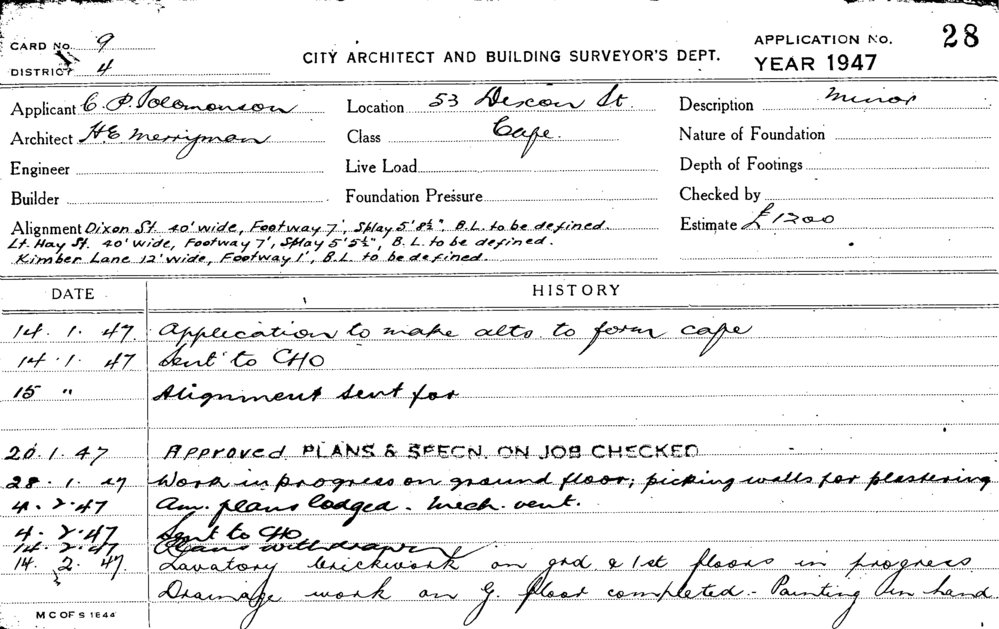 CARD No. 9
DISTRICT 4
CITY ARCHITECT AND BUILDING SURVEYOR'S DEPT.
APPLICATION No. 28
YEAR 1947
Applicant C. P. Solomonson
Location 53 Dixon St.
Description Minor
Architect H.E. Merryman
Class Cafe.
Nature of Foundation
Engineer
Live Load
Depth of Footings
Builder
Foundation Pressure
Checked by
Alignment Dixon St. 40' wide, Footway 7', Splay 5' 8½", B.L. to be defined.
Estimate £1200
Lt. Hay St. 40' wide, Footway 7', Splay 5' 5½", B.L. to be defined.
Kimber Lane 12' wide, Footway 1', B.L. to be defined.
DATE HISTORY
14. 1. 47 Application to make alts. to form cafe
14. 1. 47 Sent to CHO
15 " Alignment sent for
20. 1. 47 Approved PLANS & SPECN. ON JOB CHECKED
28. 1. 47 Work in progress on ground floor; picking walls for plastering
4. 2. 47 Am. plans lodged. Mech. vent.
4. 2. 47 Sent to CHO
14. 2. 47 Plans withdrawn
14. 2. 47 Lavatory brickwork on grd & 1st floors in progress
Drainage work on G. floor completed - Painting in hand
M C OF S 1844